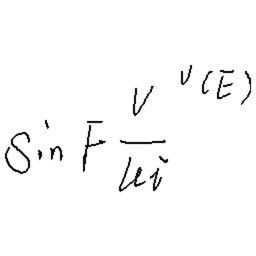 \sin F \frac{V}{\mu i}^{v(E)}